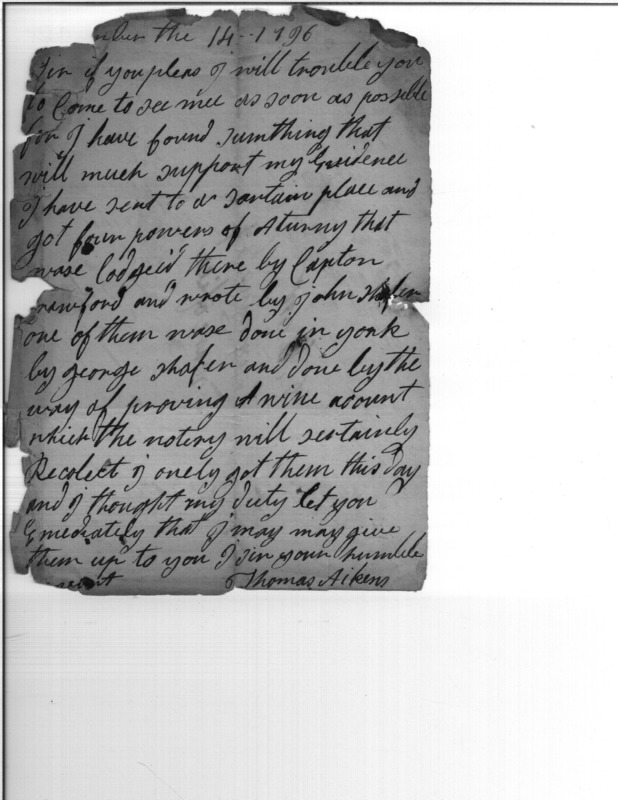 mber the 14--1796
Sir if you pleas I will trouble you
to Come to see mee as soon as possible
for I have found sumthing that
will much support my Evidence
I have sent to a sartain place and
got four powers of Aturny that
wase lodgeid there by Capton
rawford and wrote by John Shafer
one of them wase done in york
by george shafer and done by the
way of proving A wine acount
which the notery will sertainly
Recolect I onely got them this day
and I thought my duty let you
Emediately that I may may give
them up to you I Sir your humble
Thomas Aikens